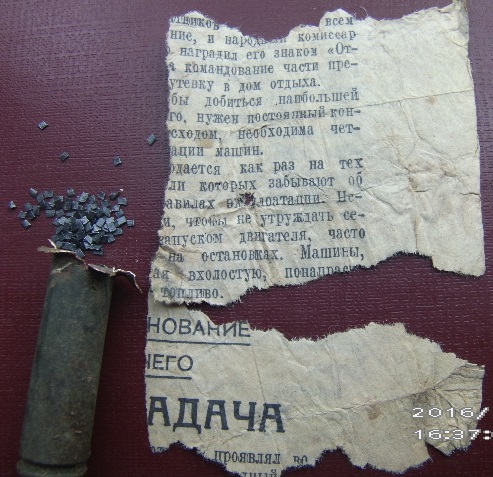 всем
ние, и народный комиссар
наградил его знаком «От-
командование части пре-
утевку в дом отдыха.
бы добиться наибольшей
го, нужен постоянный кон-
сходом, необходима чет-
ации машин.
одается как раз на тех
ли которых забывают об
равилах эксплоатации. Не-
и, чтобы не утруждать се-
запуском двигателя, часто
на остановках. Машины,
ая вхолостую,
топливо.
НОВАНИЕ
ЧЕГО
АДАЧА
проявлял во
2016/
16:37: